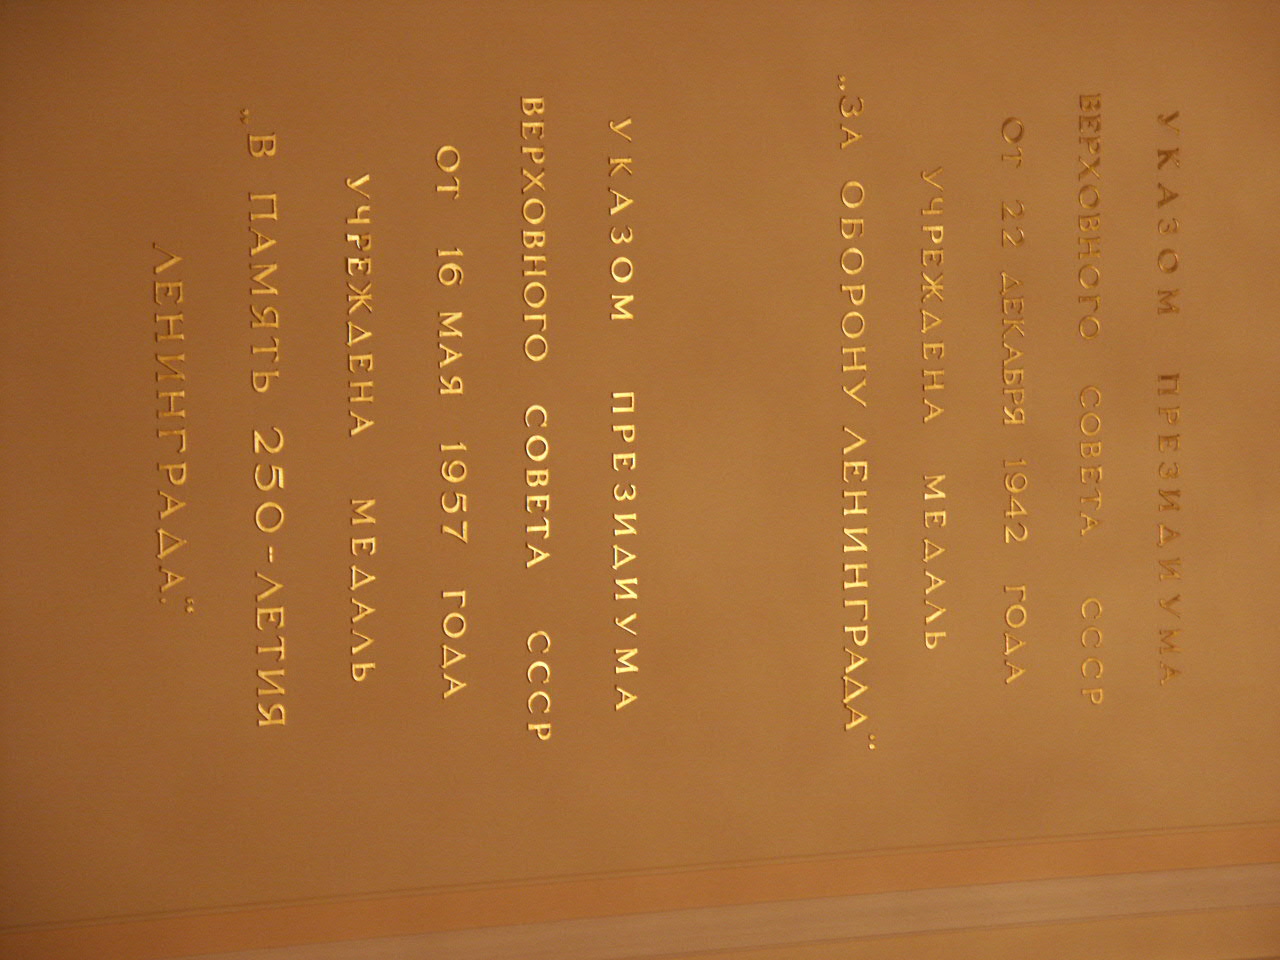 УКАЗОМ ПРЕЗИДИУМА
ВЕРХОВНОГО СОВЕТА СССР
ОТ 22 ДЕКАБРЯ 1942 ГОДА
УЧРЕЖДЕНА МЕДАЛЬ
„ЗА ОБОРОНУ ЛЕНИНГРАДА“
УКАЗОМ ПРЕЗИДИУМА
ВЕРХОВНОГО СОВЕТА СССР
ОТ 16 МАЯ 1957 ГОДА
УЧРЕЖДЕНА МЕДАЛЬ
„В ПАМЯТЬ 250-ЛЕТИЯ
ЛЕНИНГРАДА.“